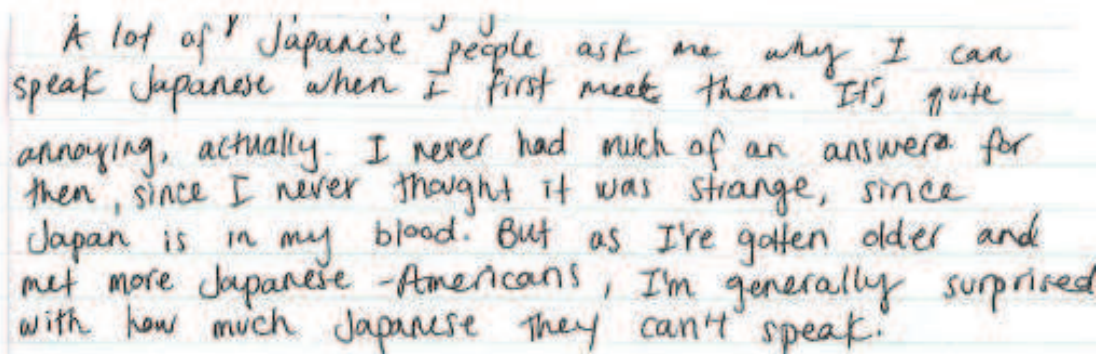 A lot of Japanese people ask me why I can
speak Japanese when I first meet them. It's quite
annoying, actually. I never had much of an answer for
then, since I never thought it was strange, since
Japan is in my blood. But as I've gotten older and
met more Japanese-Americans, I'm generally surprised
with how much Japanese they can't speak.